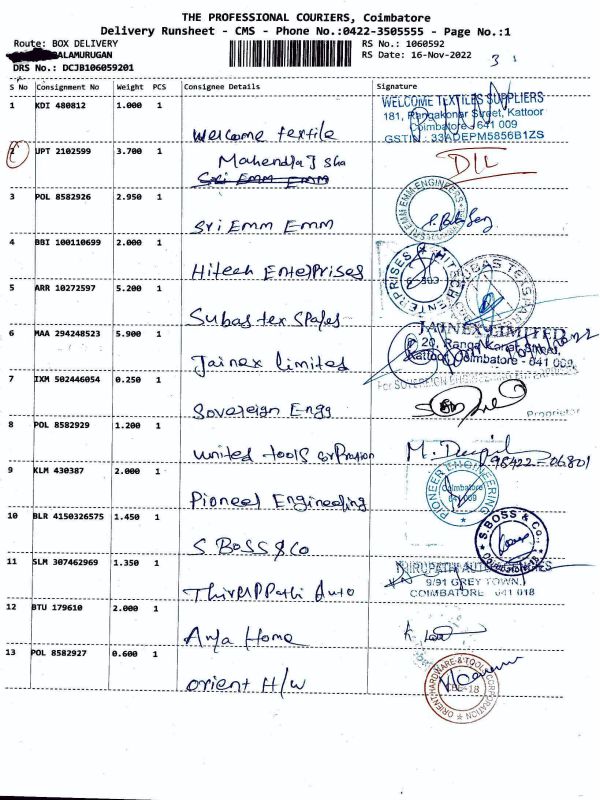 THE PROFESSIONAL COURIERS, Coimbatore
Delivery Runsheet - CMS - Phone No.:0422-3505555 - Page No.:1
Route: BOX DELIVERY RS No.: 1060592
ALAMURUGAN RS Date: 16-Nov-2022 3
DRS No.: DCJB106059201
S No Consignment No Weight PCS Consignee Details Signature
1 KDI 480812 1.000 1
WELCOME TEXTILES SUPPLIERS
181, Ranganokar Street, Kattoor
Coimbatore - 641 009
GSTIN : 33ADEPM5856B1ZS
Welcome textile
2 UPT 2102599 3.700 1 Mahendra J sha DIL
Sri Emm Emm
3 POL 8582926 2.950 1
SRI EMM EMM ENGINEERS
Sri Emm Emm
4 BBI 100110699 2.000 1
ENTERPRISES HITECH
Hitech Enterprises
5 ARR 10272597 5.200 1
SUBAS TEX
Subas tex Spares
6 MAA 294248523 5.900 1
JAINEX LIMITED
20, Ranga Konar Street,
Kattoor, Coimbatore - 641 009
Jainex limited
7 IXM 502446054 0.250 1
For SOVEREIGN ENGINEERING
Proprietor
Sovereign Engg
8 POL 8582929 1.200 1
98422-06801
united tools
9 KLM 430387 2.000 1
PIONEER ENGINEERING
Coimbatore
641 009
Pioneer Engineering
10 BLR 4150326575 1.450 1
S.BOSS & Co.
Coimbatore-18
S. BOSS & Co
11 SLM 307462969 1.350 1
THIRUPATHI AUTO AGENCIES
9/91 GREY TOWN,
COIMBATORE 641 018
Thiruppathi Auto
12 BTU 179610 2.000 1
Home
13 POL 8582927 0.600 1
ORIENT HARDWARE & TOOLS CORPORATION
orient H/W